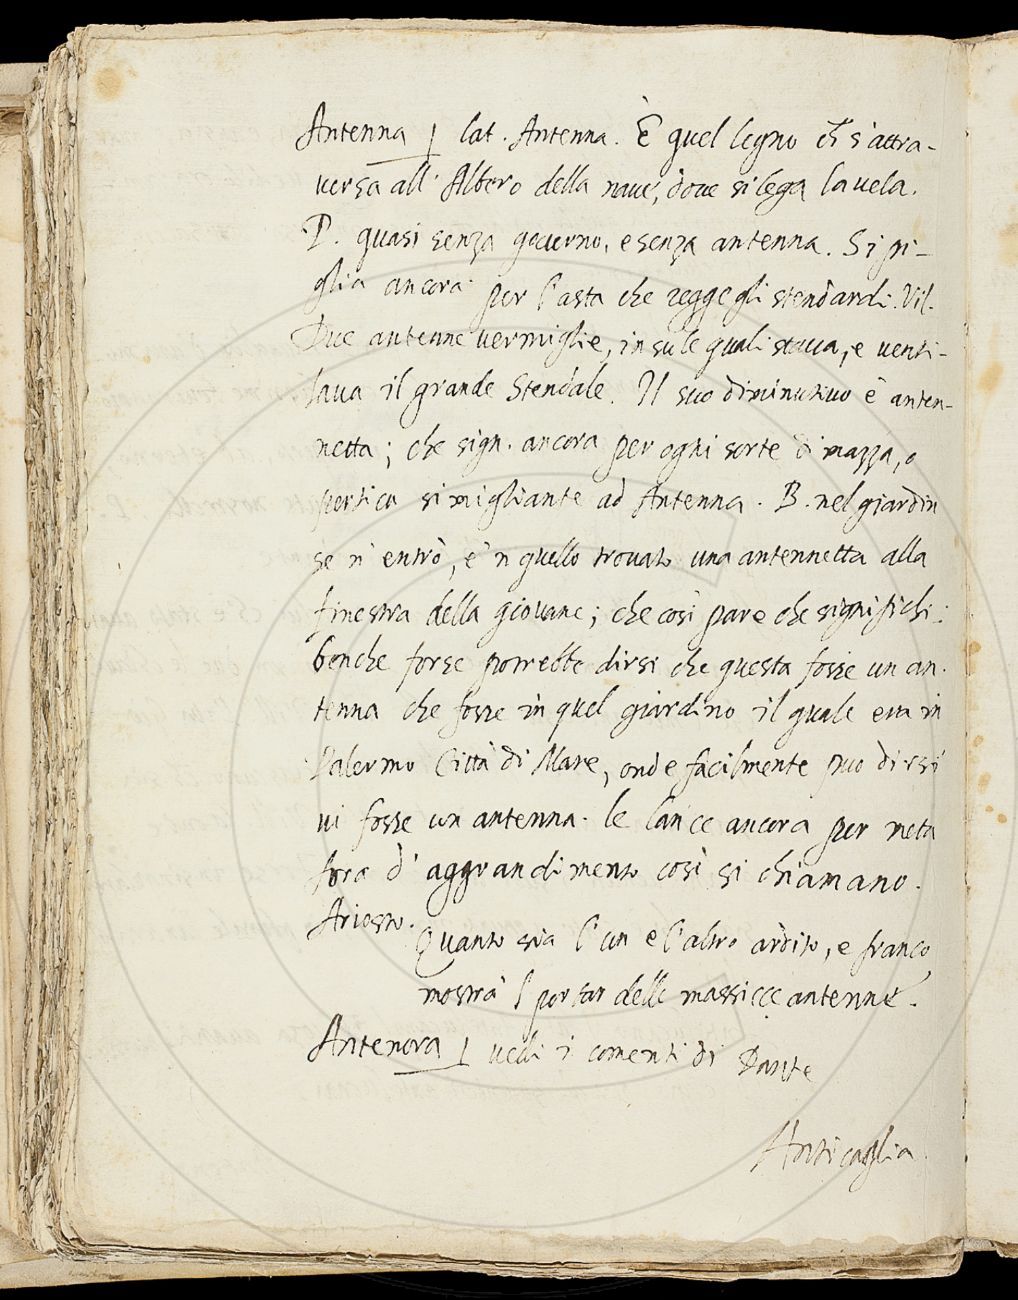 Antenna | lat. Antenna. È quel legno ch s'attra-
versa all' Albero della nave, dove si lega la vela.
P. quasi senza governo, e senza antenna. Si pi-
glia ancora per l'asta che regge gli stendardi. Vil.
Due antenne vermiglie, in su le quali stava, e venti-
lava il grande Stendale. Il suo diminutivo è anten-
netta; che sign. ancora per ogni sorte di mazza, o
pertica simigliante ad Antenna. B. nel giardin
se n' entrò, e 'n quello trovato una antennetta alla
finestra della giovane; che così pare che significhi:
benche forse potrebbe dirsi che questa fosse un an-
tenna che fosse in quel giardino il quale era in
Palermo Città di Mare, onde facilmente può dirsi
vi fosse un antenna. le lance ancora per meta
fora d' aggrandimento così si chiamano.
Ariosto.
Quanto sia l'un e l'altro ardito, e franco,
mostra 'l portar delle massicce antenne.
Antenora | vedi i comenti di Dante
Anticaglia.